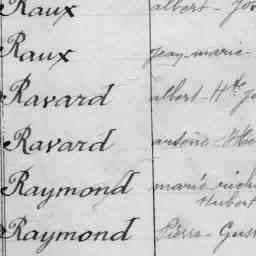 Raux albert - Jos
Raux jean-marie -
Ravard albert - Hte Jo
Ravard antoine -
Raymond marie
Hubert
Raymond Pierre - Gus